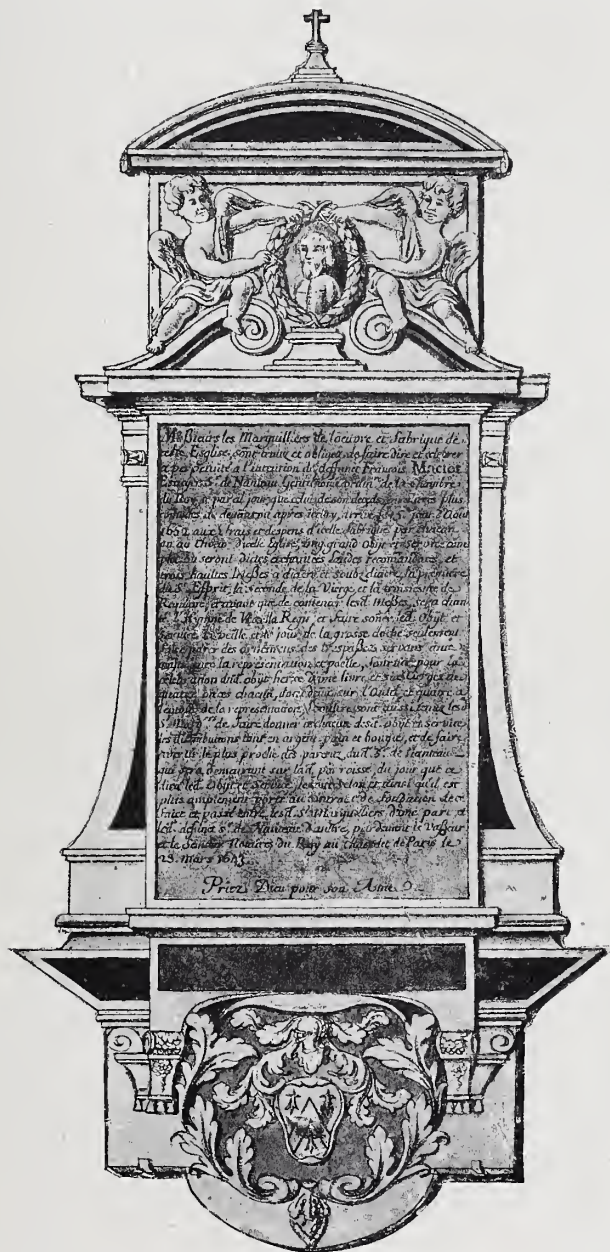 Messieurs les Marguilliers de l'oeuvre et fabrique de
ceste Esglise, sont tenus et obligez de faire dire et celebrer
a perpetuité a l'intention de deffunct François Maciot
Escuyer Sr. de Nanteau Gentilhomme de la chambre
du Roy, a pareil jour que celui de son deceds
d'Aout
1652 aux frais et despens d'icelle fabrique
au Choeur d'icelle Eglise, ung grand Obyt et service com
plet, ou seront dictes recomandaces, et
trois haultes Messes a diacre et soubz diacre, la premiere
du St. Esprit, la seconde de la Vierge, et la troisiesme de
Requiem, avant que de commencer lesd. Messes, sera chan
té l'Hymne de Vexilla Regis et faire sonner led. Obyt et
service la veille et le jour de la grosse cloche seulement
faire parer des ornemens des trespassez servans
avec la representation et poelle, fournir pour la
celebration dud. obyt d'une livre, et six Cierges de
quatre onces chacun, dont deux sur l'Autel et quatre a
l'entour de la representation, sont aussi tenus lesd.
Srs. Marguilliers de faire donner a chacun desd. obyts et services
les distributions tant en argent, pain et bougie, et de faire
avertir le plus proche des parens dud. Sr. de Nanteau
qui sera demeurant sur lad. parroisse, du jour que ce
dira led. Obyt et service, le tout selon et ainsi qu'il est
plus amplement porté au contract de fondation de ce
faict et passé entre lesd. Srs. Marguilliers d'une part et
led. defunct Sr. de Nanteau d'autre, pardevant le Vasseur
et le Notaires du Roy au Chastelet de Paris le
23. Mars 1643
Priez Dieu pour son Ame